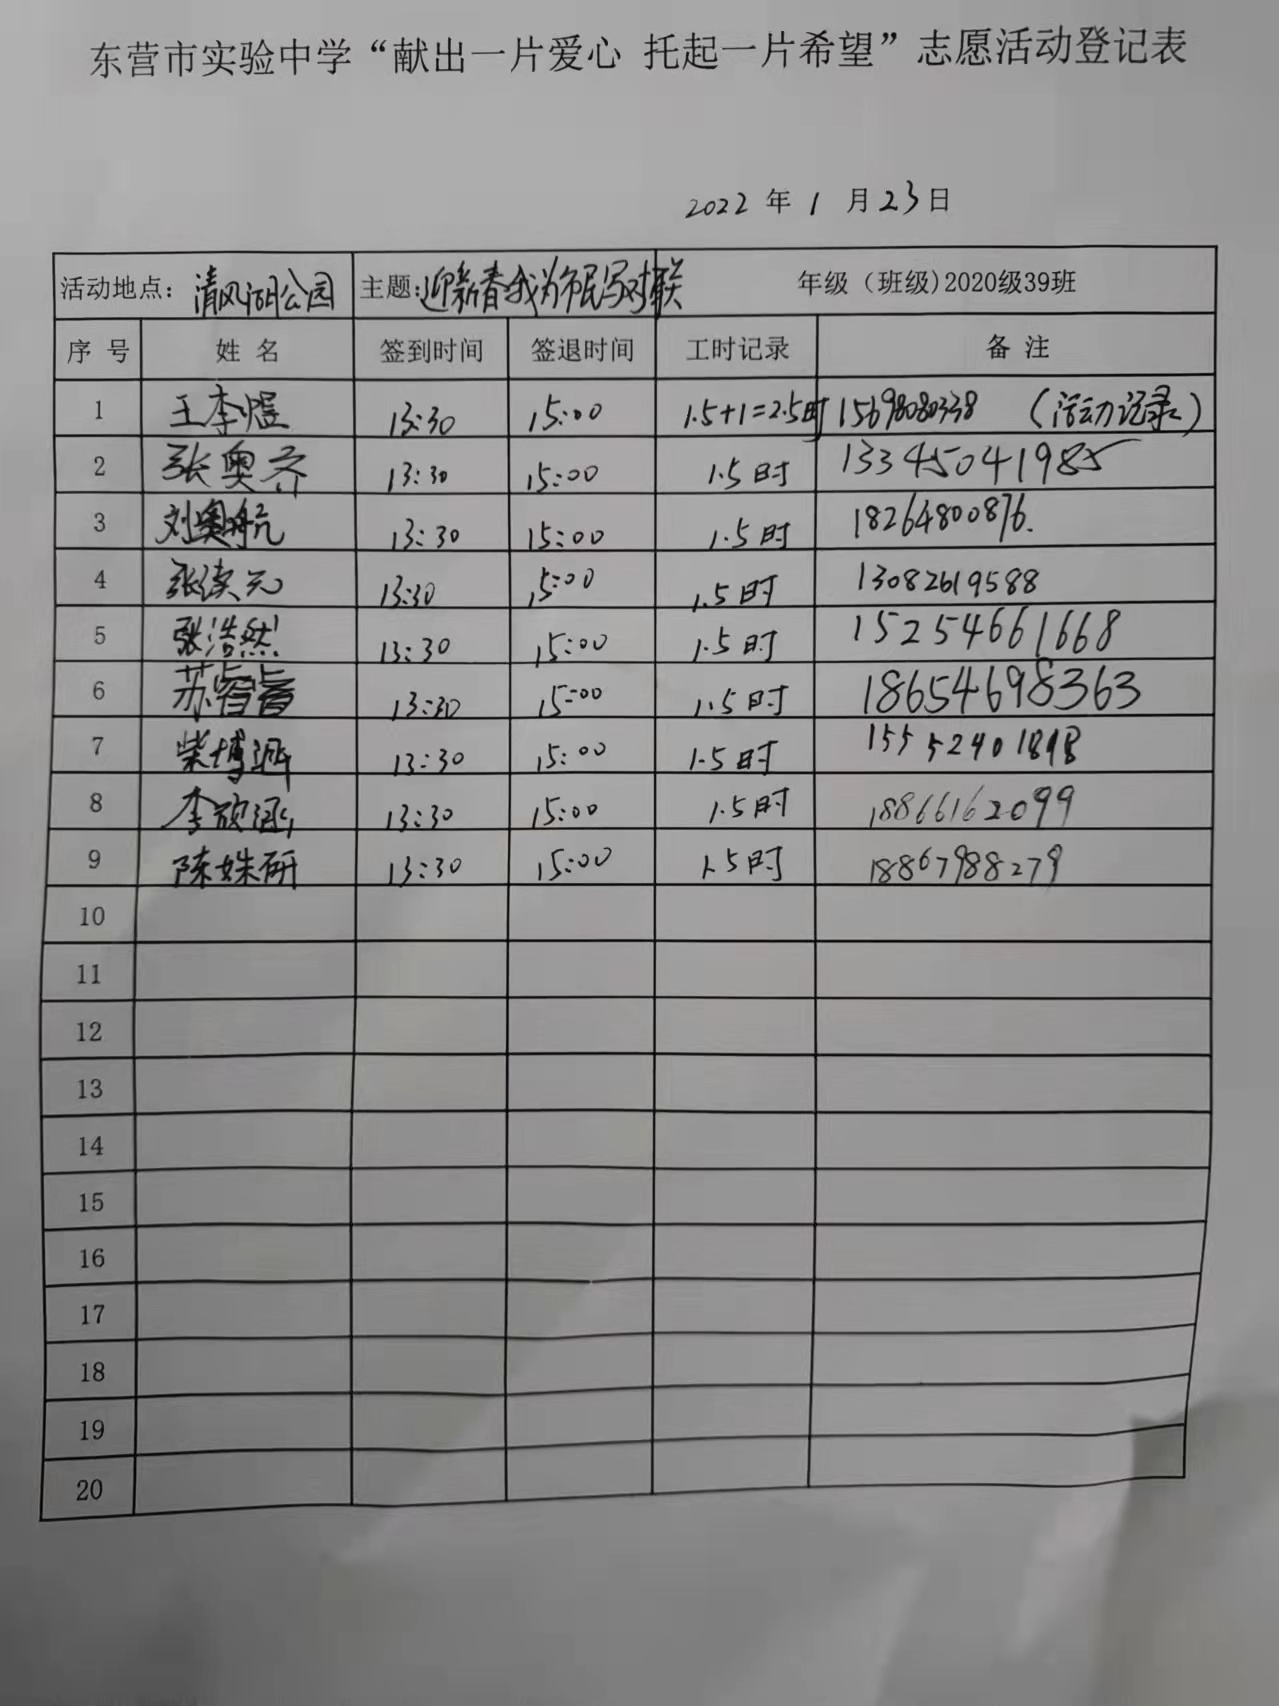 东营市实验中学“献出一片爱心 托起一片希望”志愿活动登记表
2022 年 1 月 23 日
活动地点：清风湖公园 主题：迎新春我为市民写对联 年级（班级)2020级39班
序 号 姓 名 签到时间 签退时间 工时记录 备 注
1 王李煜 13:30 15:00 1.5+1=2.5时 15698080338 （活动记录）
2 张奥齐 13:30 15:00 1.5时 13345041985
3 刘奥航 13:30 15:00 1.5时 18264800876.
4 张淏元 13:30 15:00 1.5时 13082619588
5 张浩然 13:30 15:00 1.5时 15254661668
6 苏睿 13:30 15:00 1.5时 18654698363
7 柴博涵 13:30 15:00 1.5时 15552401898
8 李欣涵 13:30 15:00 1.5时 18866162099
9 陈姝研 13:30 15:00 1.5时 18867988279
10
11
12
13
14
15
16
17
18
19
20